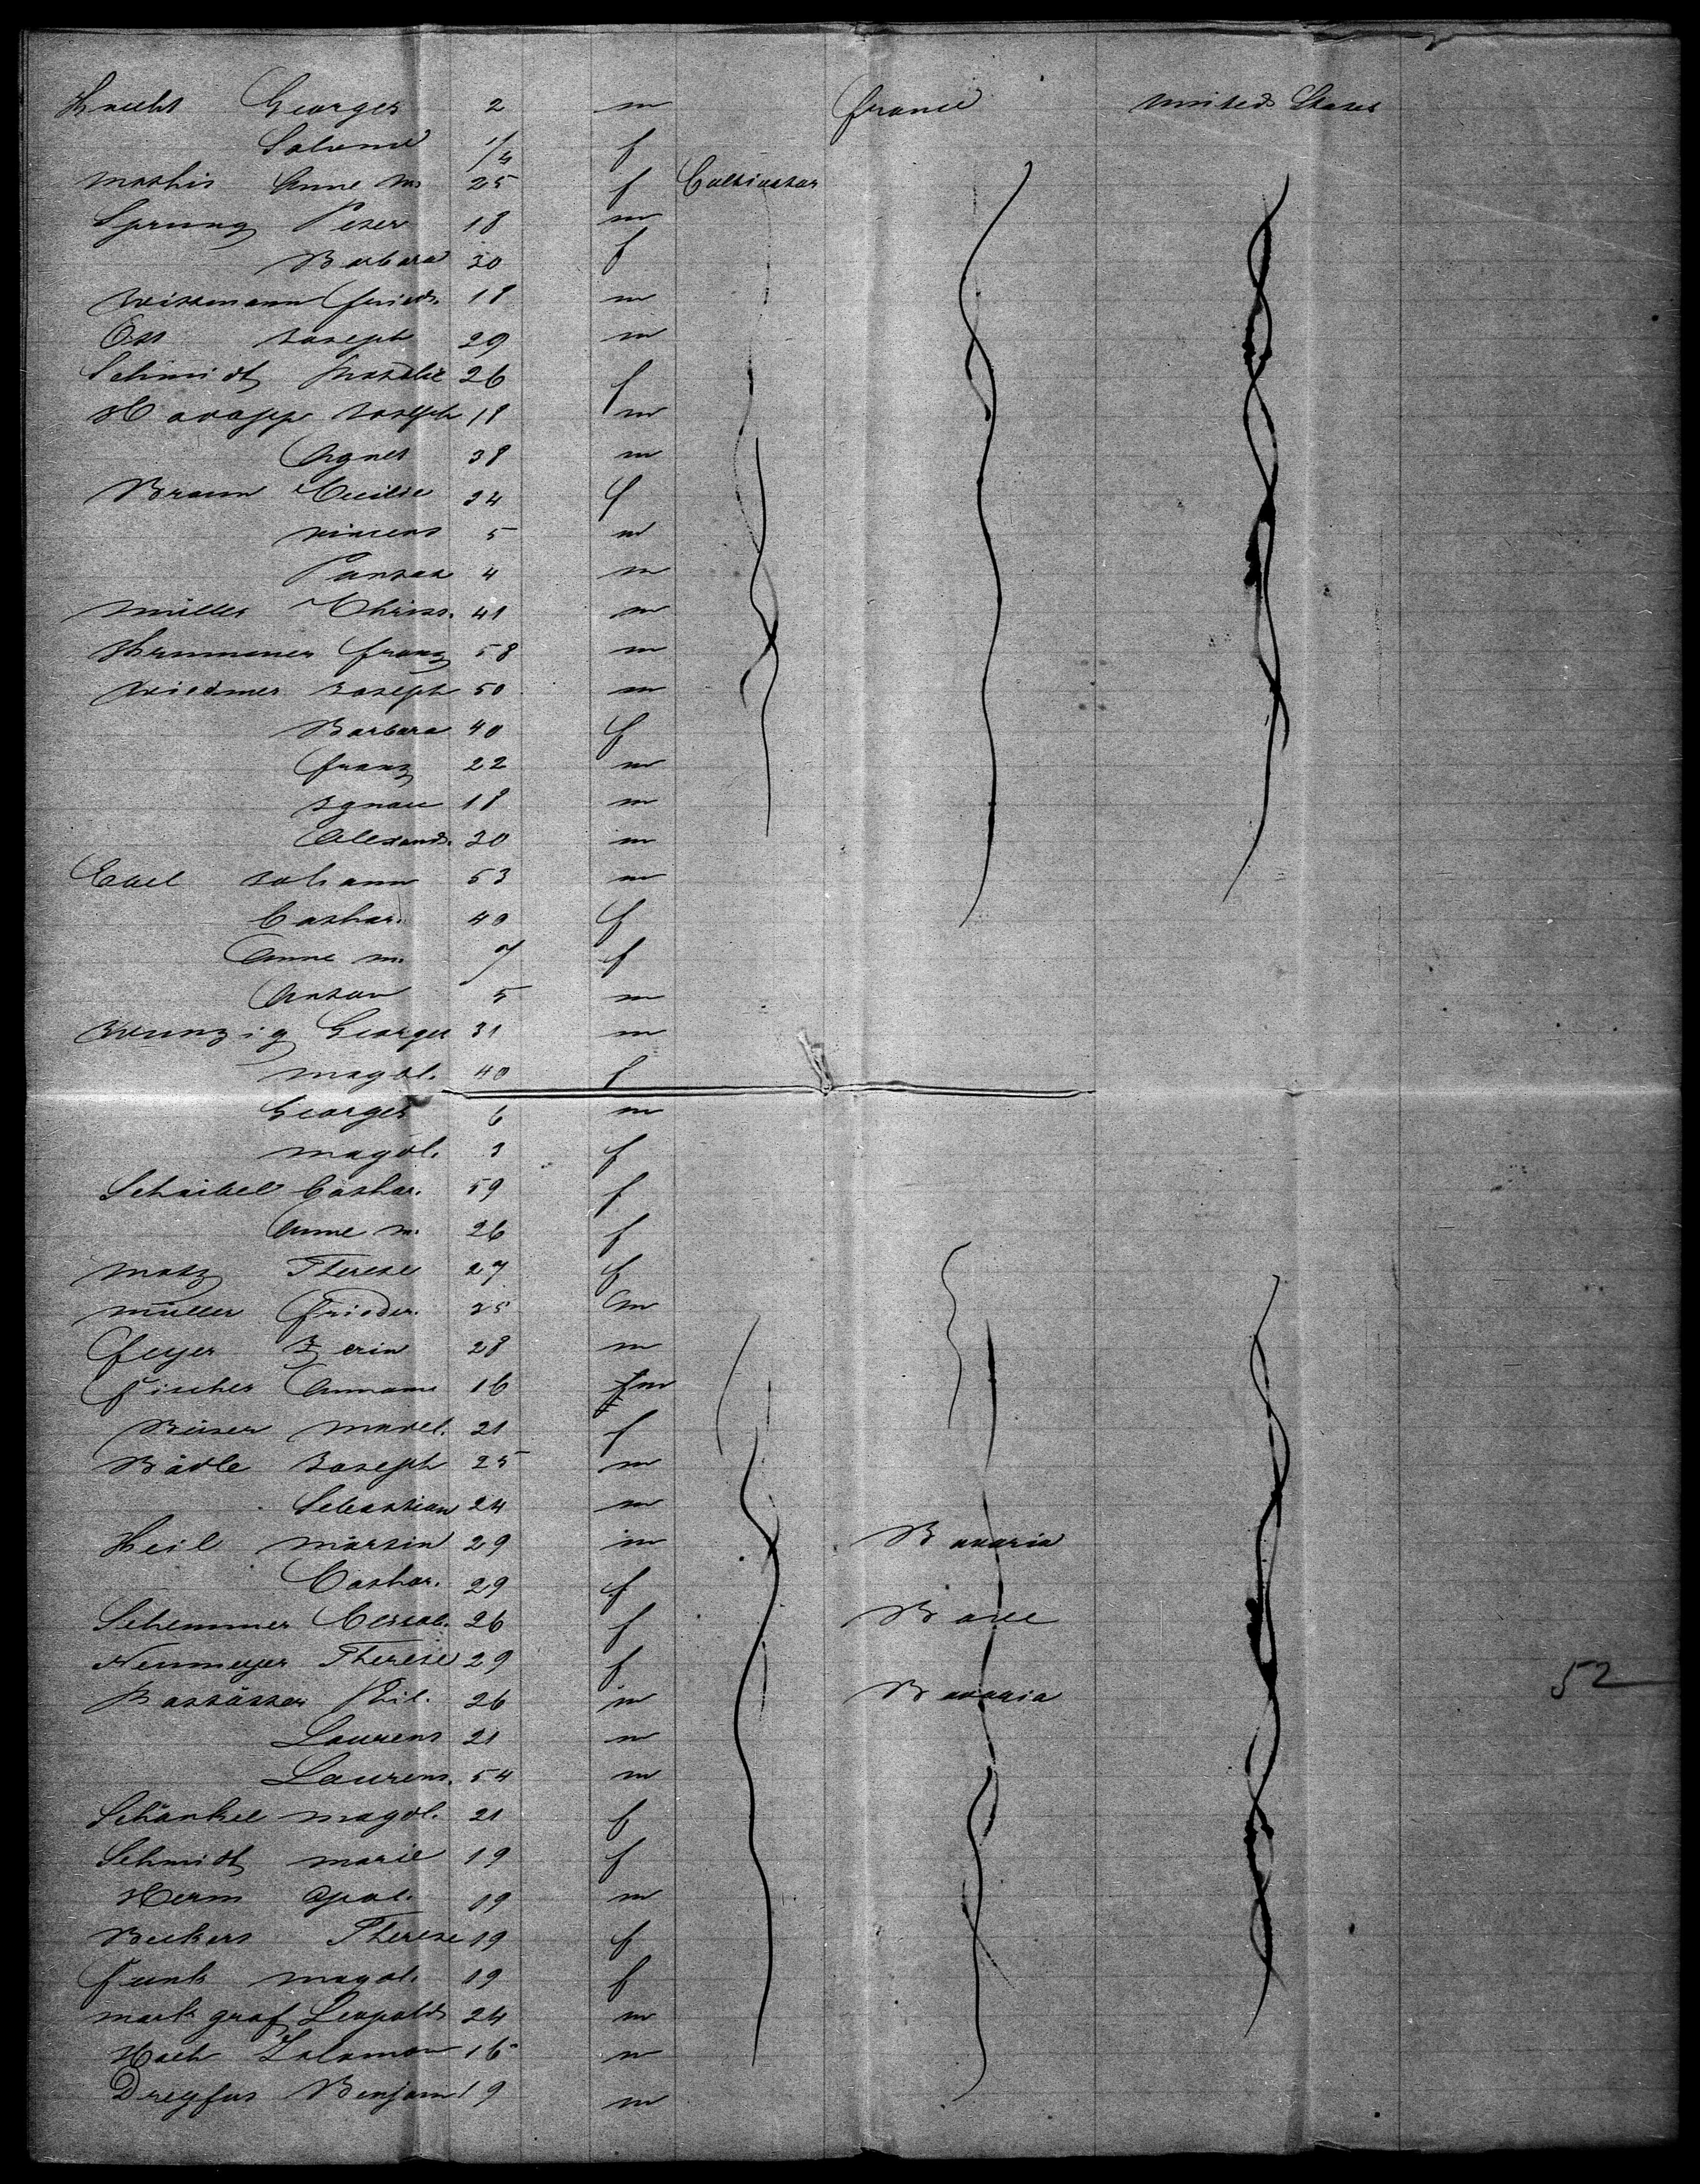 Knecht Georges 2 m France United States
Salomé 1/4 f
Mathis Anne M. 25 f Cultivator
Sprung Peter 18 m
Barbara 30 f
Wissmann Friedr. 18 m
Ott Joseph 29 m
Schmidt 26 f
Joseph 18 m
Agnes 38 m
Braun Cecilie 24 f
Vincent 5 m
4 m
Müller Christ. 41 m
Franz 58 m
Wiedmer Joseph 50 m
Barbara 40 f
Franz 22 m
Ignace 18 m
Alexand. 20 m
Johann 53 m
Cathar. 40 f
Anne M. 7 f
Anton 5 m
Wunzig Georges 31 m
Magdl. 40 f
Georges 6 m
Magdl. 3 f
Schaibel Cathar. 59 f
Anne M. 26 f
Matz Therese 27 f
Müller Frieder. 25 m
Feyer 28 m
Fischer 16 m
Madel. 21 f
Bädle Joseph 25 m
Sebastian 24 m
Keil Martin 29 m Bavaria
Cathar. 29 f
Schemmer 26 f
Neumeyer Therese 29 f
Phil. 26 m Bavaria 52
Laurent 21 m
Laurent. 54 m
Schänkel Magdl. 21 f
Schmidt Marie 19 f
Herm Apol. 19 m
Beckers Therese 19 f
Funk Magdl. 19 f
Markgraf Leopold 24 m
Hoch Salomon 16 m
Dreyfus Benjam 19 m